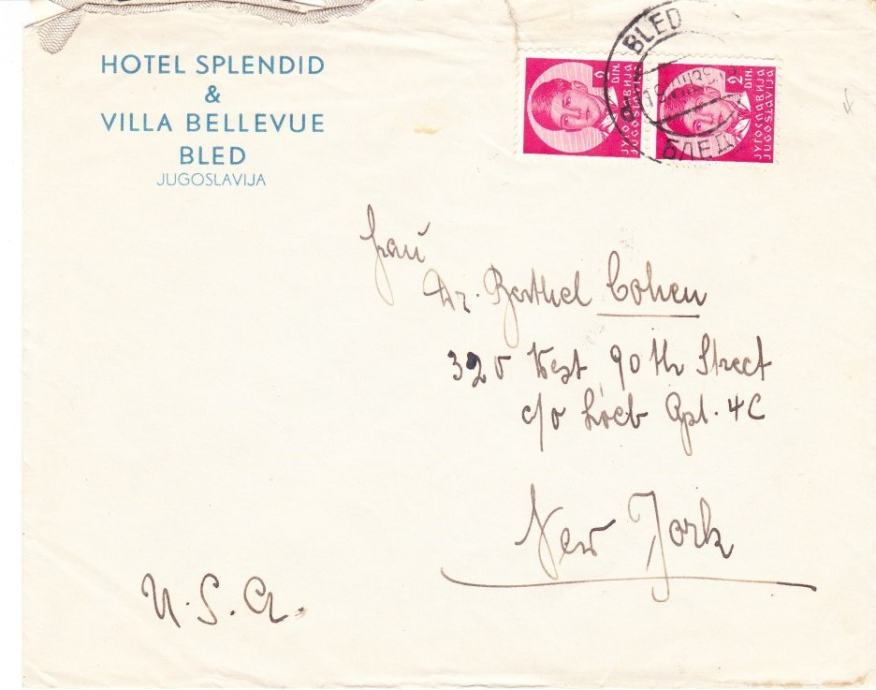 HOTEL SPLENDID
&
VILLA BELLEVUE
BLED
JUGOSLAVIJA
2 DIN.
ЈУГОСЛАВИЈА
JUGOSLAVIJA
2 DIN.
ЈУГОСЛАВИЈА
JUGOSLAVIJA
BLED
БЛЕД
Frau
Dr. Berthel Cohen
320 West 90th Street
c/o Loeb Apt. 4C
New York
U.S.A.